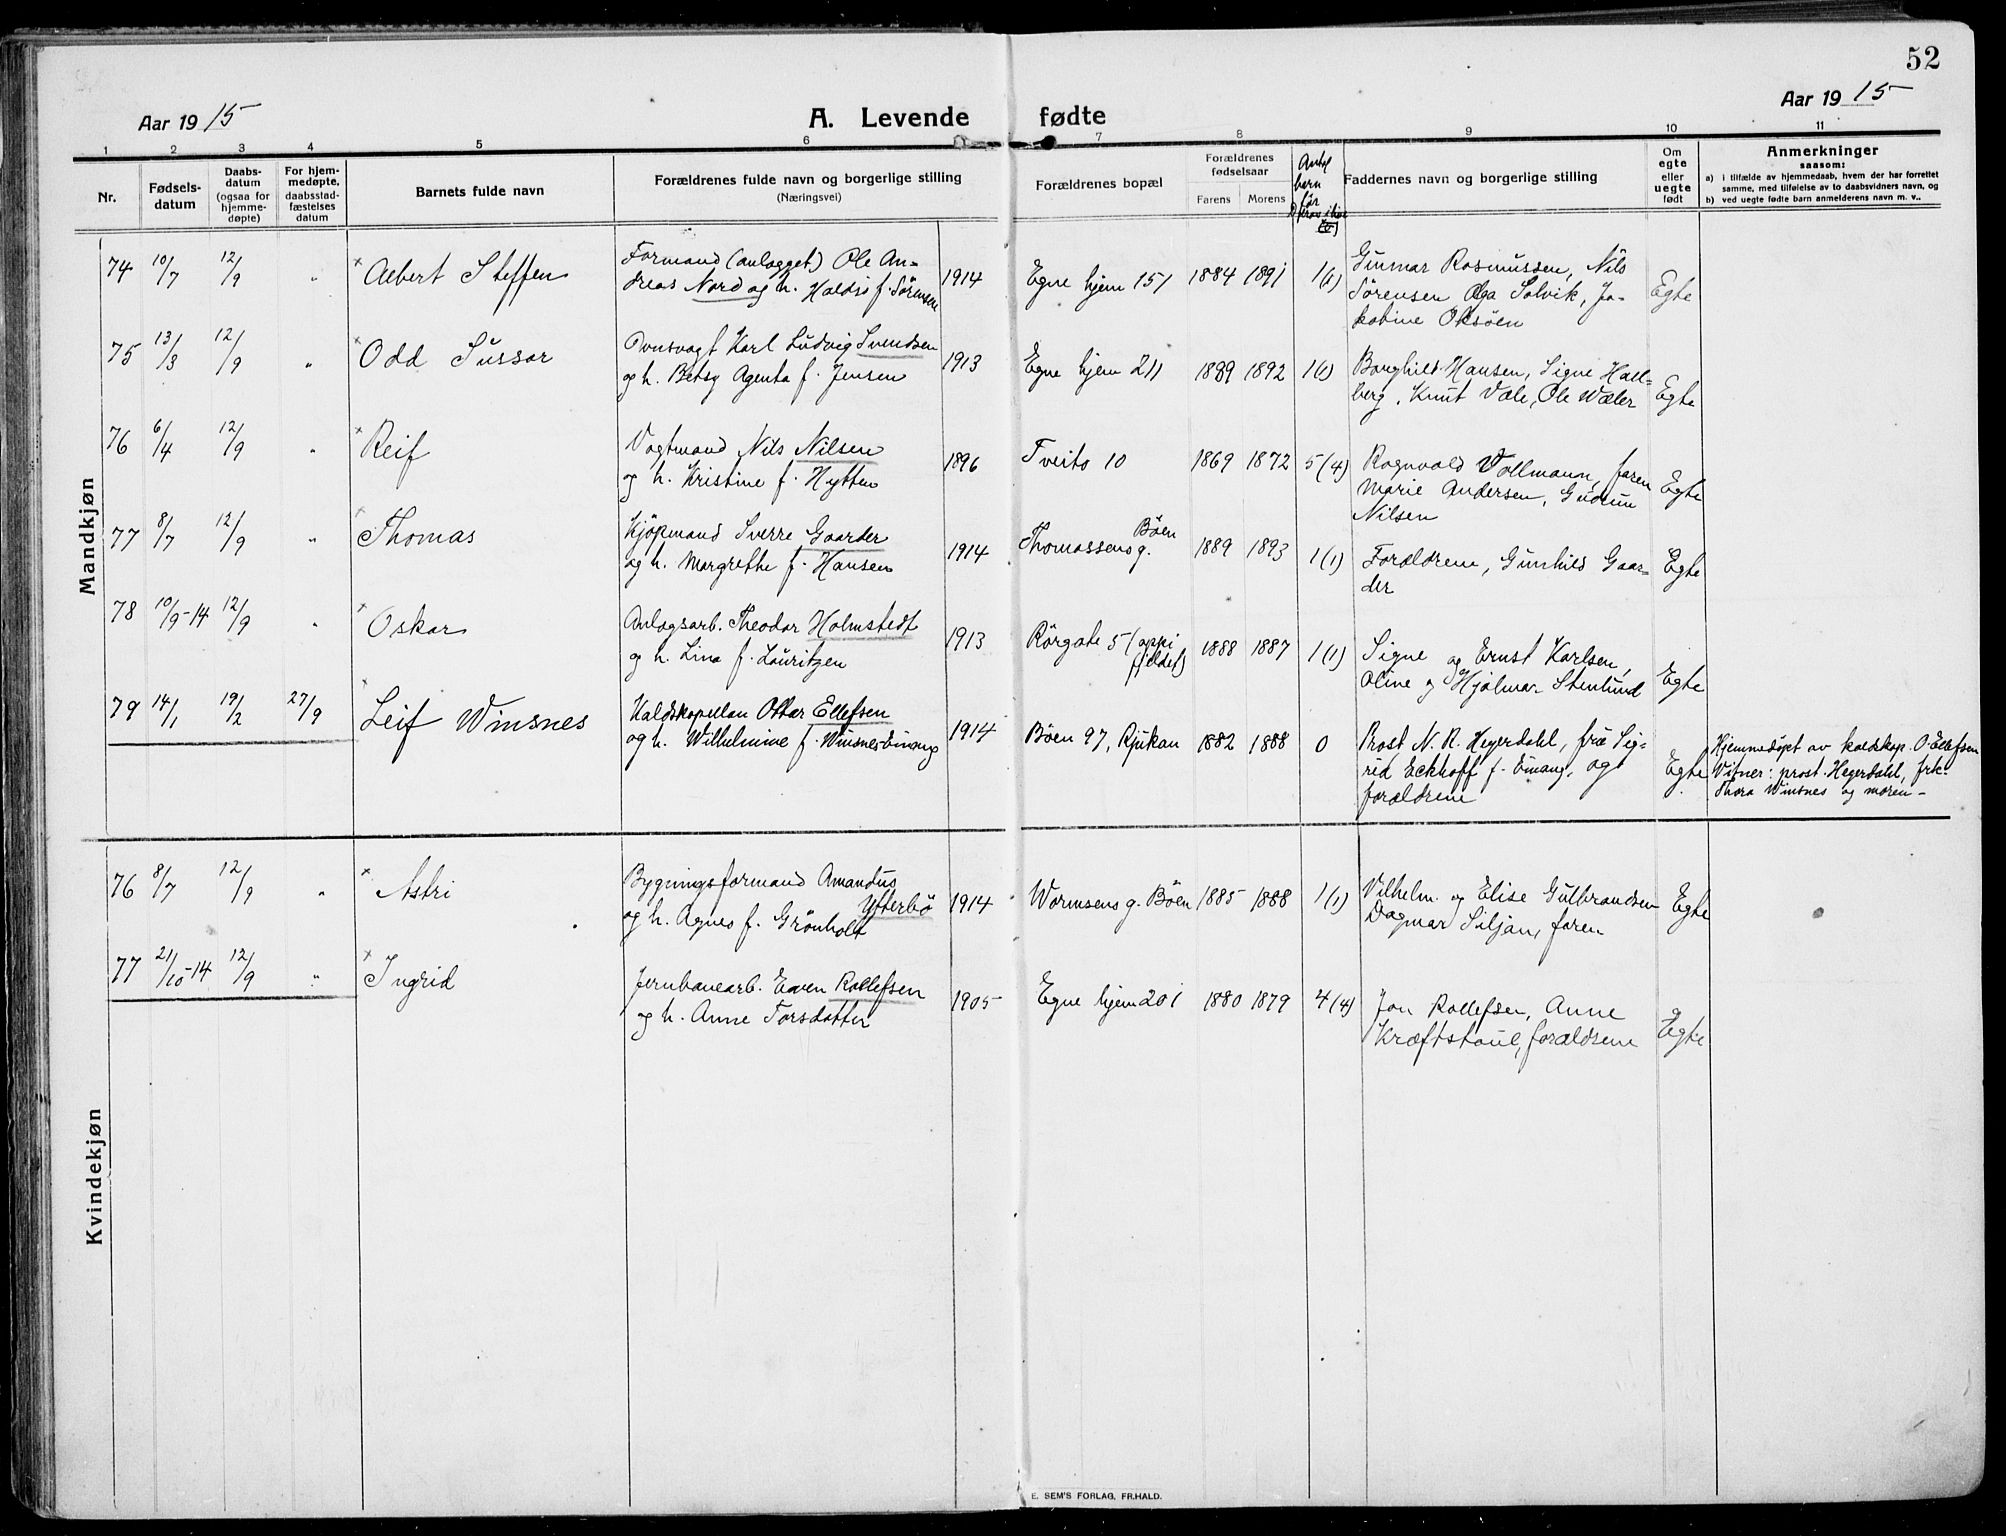 52
Aar 1915
A. Levende fødte
Aar 1915
1 2 3 4 5 6 7 8 9 10 11
Nr.
Fødselsdatum
Daabsdatum (ogsaa for hjemmedøpte)
For hjemmedøpte, daabsstadfæstelses datum
Barnets fulde navn
Forældrenes fulde navn og borgerlige stilling
(Næringsvei)
Forældrenes bopæl
Forældrenes fødselsaar
Farens Morens
Antal barn før
Faddernes navn og borgerlige stilling
Om egte eller uegte født
Anmerkninger
saasom:
a) i tilfælde av hjemmedaab, hvem der har forrettet
samme, med tilføielse av to daabsvidners navn, og
b) ved uegte fødte barn anmelderens navn m. v..
Mandkjøn
74 10/7 12/9 " Albert Steffen Formand (anlegget) Ole An- 1914 Egne hjem 151 1884 1891 1(1) Gunnar Rasmussen, Nils Egte
dreas Nord og h. Haldis f. Sörensen
Sörensen Olga Solvik, Ja-
kobine Oksöen
75 13/3 12/9 " Odd Sussar Ovnsvagt Karl Ludvig Svendsen 1913 Egne hjem 211 1889 1892 1(1) Borghild Hansen, Signe Hall- Egte
og h. Betsy Agenta f. Jensen
berg, Knut Vale, Ole Wæler
76 6/4 12/9 " Reif Vagtmand Nils Nilsen 1896 Tveito 10 1869 1872 5(4) Ragnvald Vollmann, faren Egte
og h. Kristine f. Hytten
Marie Andersen, Gudrun
Nilsen
77 8/7 12/9 " Thomas Kjöpmand Sverre Gaarder 1914 Thomassens g. Böen 1889 1893 1(1) Forældrene, Gunhild Gaar- Egte
og h. Margrethe f. Hansen
der
78 10/9-14 12/9 " Oskar Anlagsarb. Theodor Holmstedt 1913 Rörgate 5 (oppi fjeldet) 1888 1887 1(1) Signe og Ernst Karlsen, Egte
og h. Lina f. Lauritzen
Oline og Hjalmar Stenlund
79 14/1 19/2 27/9 Leif Winsnes Kaldskapellan Ottar Ellefsen 1914 Böen 97, Rjukan 1882 1888 0 Prost N. R. Heyerdahl, frü Sig- Egte Hjemmedöpt av kaldskap. O. Ellefsen
og h. Wilhelmine f. Winsnes Einang
rid Eckhoff f. Einang, og
Vitner: prost Heyerdahl, frk.
forældrene
Thora Winsnes og moren -
Kvindekjøn
76 8/7 12/9 " Astri Bygningsformand Amandus Ytterbö 1914 Wormsens g. Böen 1885 1888 1(1) Vilhelm og Elise Gulbrandsen Egte
og h. Agnes f. Grönholt
Dagmar Siljan, faren
77 21/10-14 12/9 " Ingrid Jernbanearb. Even Rollefsen 1905 Egne hjem 201 1880 1879 4(4) Jon Rollefsen, Anne Egte
og h. Anne Torsdatter
Kræftstoul, forældrene
E. SEM'S FORLAG, FR.HALD.